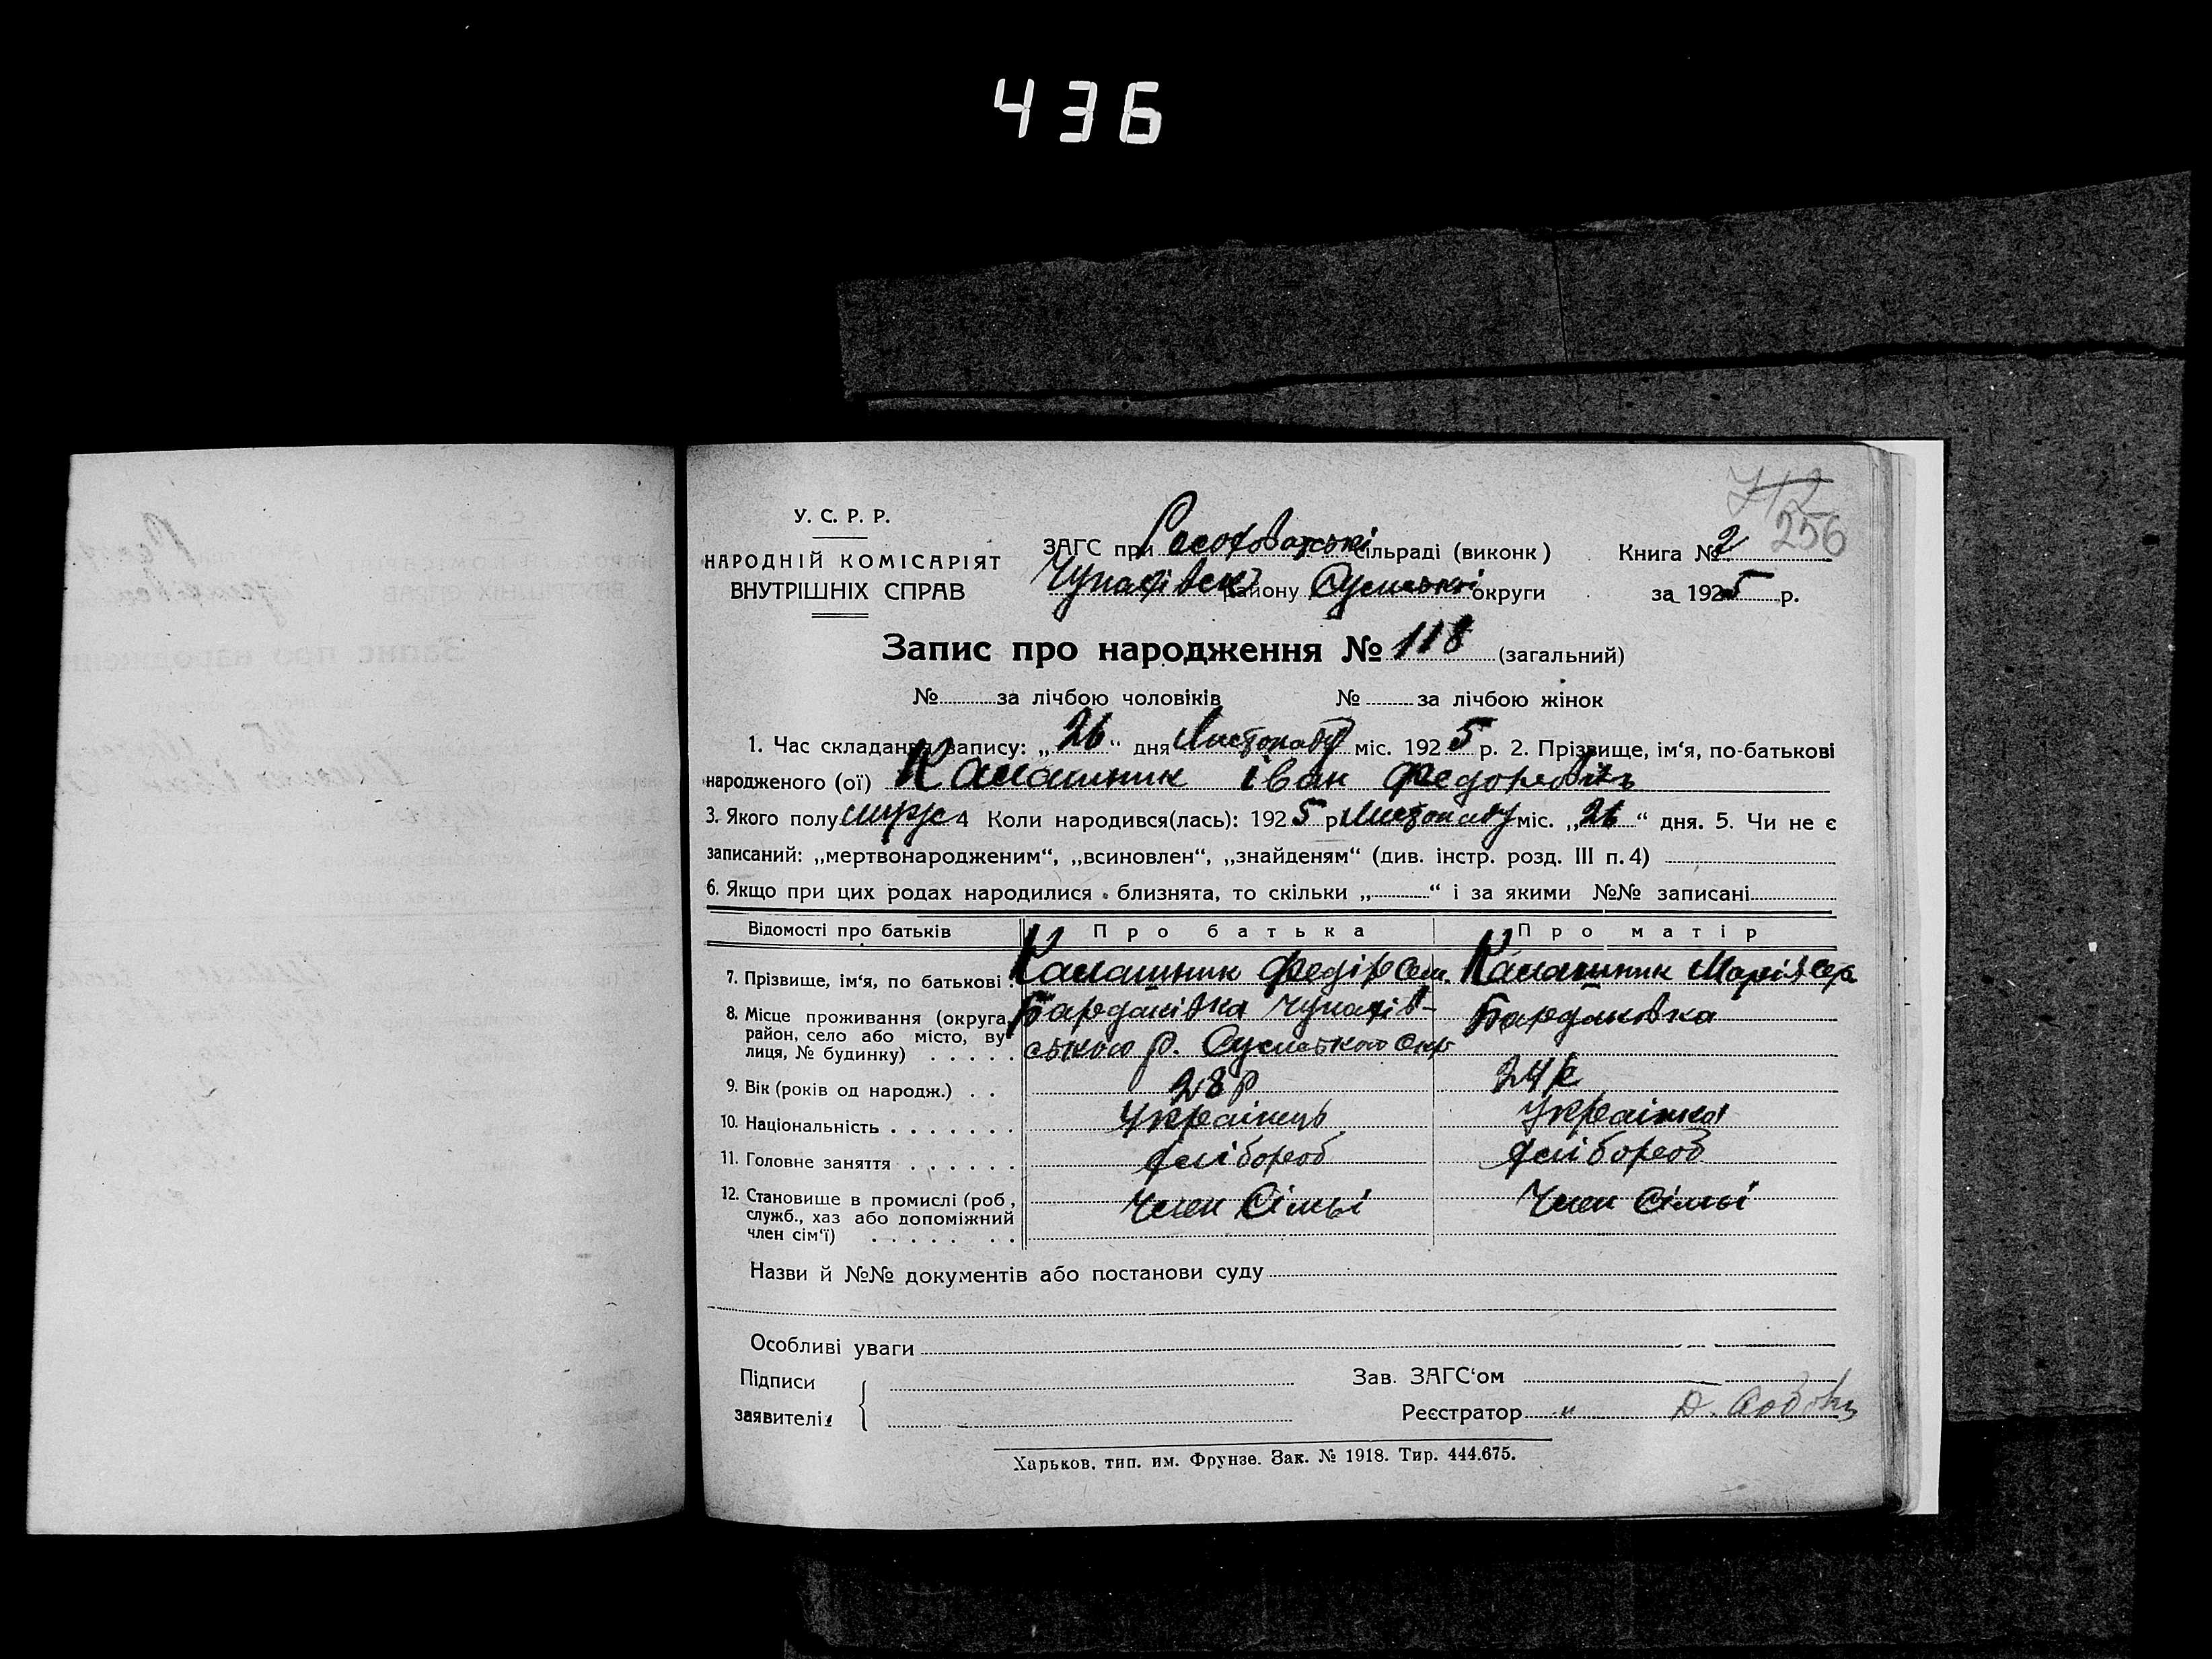 436
712
256
У. С. Р. Р.
НАРОДНІЙ КОМІСАРІЯТ
ВНУТРІШНІХ СПРАВ
ЗАГС при сільраді (виконк) Книга № 2
Чупахівськ району Сумської округи за 1925 р.
Запис про народження № 118 (загальний)
№ за лічбою чоловіків № за лічбою жінок
1. Час складання запису: „26“ дня Листопаду міс. 1925 р. 2. Прізвище, ім‘я, по-батькові
народженого (ої) Калашник Іван Федоровичь
3. Якого полу 4 Коли народився(лась): 1925 р Листопаду міс. „26“ дня. 5. Чи не є
записаний: „мертвонародженим“, „всиновлен“, „знайденям“ (див. інстр. розд. III п. 4)
6. Якщо при цих родах народилися близнята, то скільки „ “ і за якими №№ записані
Відомості про батьків Про батька Про матір
7. Прізвище, ім‘я, по батькові Калашник Федір Сем. Калашник Марія
8. Місце проживання (округа, район, село або місто, вулиця, № будинку) Бардаківка Чупахів-
ського р. Сумського Окр Бардаковка
9. Вік (років од народж.) 28 р 24 р
10. Національність Українець Українка
11. Головне заняття хлібороб хлібороб
12. Становище в промислі (роб., служб., хаз або допоміжний член сім‘ї) Член Сімьі Член Сімьі
Назви й №№ документів або постанови суду
Особливі уваги
Підписи
заявителів
Зав. ЗАГС‘ом
Реєстратор „ Д.
Харьков. тип. им. Фрунзе. Зак. № 1918. Тир. 444.675.